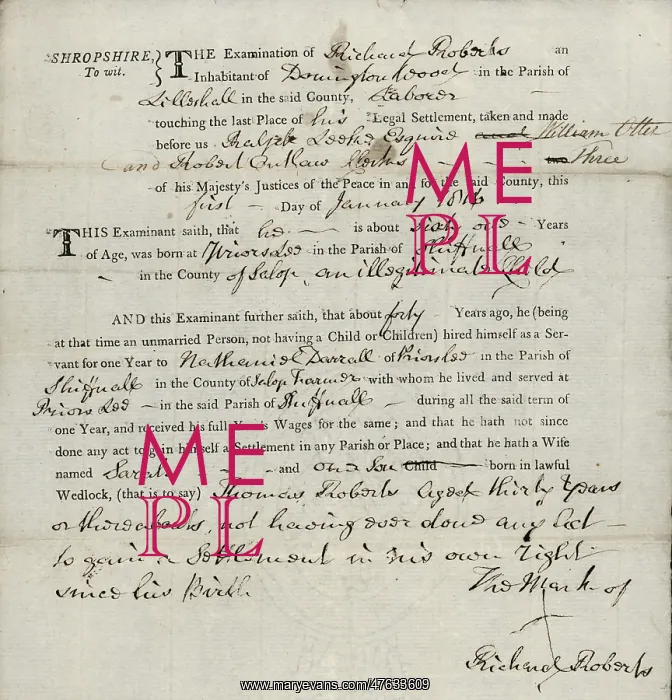 SHROPSHIRE, } THE Examination of Richard Roberts an
To wit. Inhabitant of Donington Wood in the Parish of
Lilleshall in the said County, Laborer
touching the last Place of his Legal Settlement, taken and made
before us Ralph Leeke Esquire and William Otter
and Robert Outlaw Clerks Three
of his Majesty's Justices of the Peace in and for the said County, this
first Day of January
THIS Examinant saith, that he is about sixty one Years
of Age, was born at Priors Lee in the Parish of Shiffnall
in the County of Salop, an illegitimate Child
AND this Examinant further saith, that about forty Years ago, he (being
at that time an unmarried Person, not having a Child or Children) hired himself as a Ser-
vant for one Year to Nathaniel Darrall of Priors Lee in the Parish of
Shiffnall in the County of Salop Farmer with whom he lived and served at
Priors Lee in the said Parish of Shuffnall during all the said term of
one Year, and received his full Year's Wages for the same; and that he hath not since
done any act to gain himself a Settlement in any Parish or Place; and that he hath a Wife
named Sarah and one Son Child born in lawful
Wedlock, (that is to say) Thomas Roberts Aged thirty Years
or thereabouts, not having ever done any Act
to gain a Settlement in his own right
since his Birth
The Mark of
Richard Roberts
ME
PL
ME
PL
www.maryevans.com/47633609